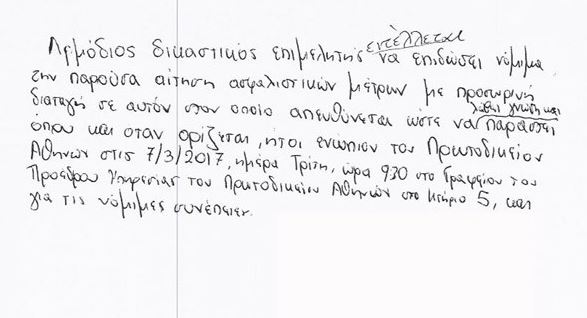 Αρμόδιος δικαστικός επιμελητής εντέλλεται να επιδώσει νόμιμα
την παρούσα αίτηση ασφαλιστικών μέτρων με προσωρινή
διαταγή σε αυτόν στον οποίο απευθύνεται ώστε να λάβει γνώση και παραστεί
όπου και όταν ορίζεται, ήτοι ενώπιον του Πρωτοδικείου
Αθηνών στις 7/3/2017, ημέρα Τρίτη, ώρα 930 στο Γραφείον του
Προέδρου Υπηρεσίας του Πρωτοδικείου Αθηνών στο κτίριο 5, και
για τις νόμιμες συνέπειες.